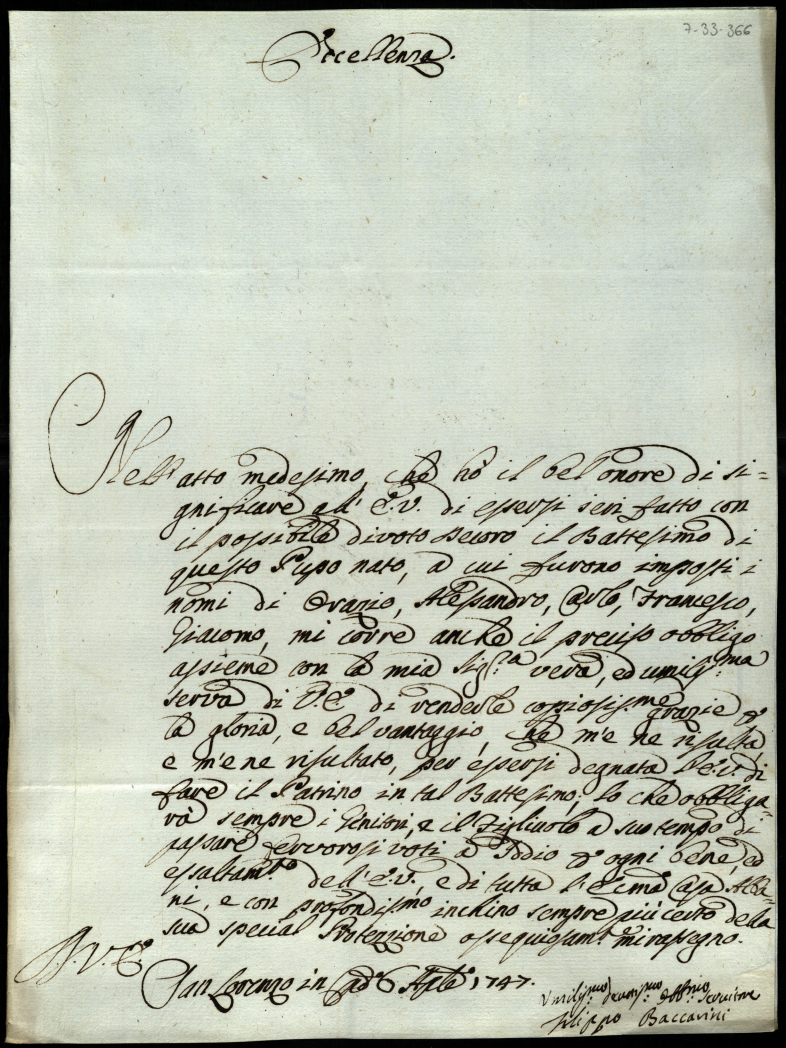 7-33-366
Eccellenza.
Nell'atto medesimo, che hò il bel onore di si=
gnificare all' E.V. di essersi ieri fatto con
il possibile divoto decoro il Battesimo di
questo Pupo nato, a cui furono imposti i
nomi di Orazio, Alessandro, Carlo, Francesco,
Giacomo, mi corre anche il preciso obbligo
assieme con la mia Sig.ra vera, ed umiliss.ma
serva di V.E. di renderle copiosissime grazie p
la gloria, e bel vantaggio, che m'e ne risulta,
e m'e ne risultato, per essersi degnata l'E.V. di
fare il Patrino in tal Battesimo; lo che obbliga=
rà sempre i Genitori, e il Figliuolo a suo tempo di
passare fervorosi voti a Iddio p ogni bene, ed
essaltam.to dell'E.V., e di tutta l'Ecma Casa Alba=
ni, e con profondissmo inchino sempre più certo della
sua special Protezzione ossequiosam.te mi rassegno.
D.V.E.
San Lorenzo in 6 Aple 1747.
Umiliss.mo Devotiss.mo Obb.mo Servitore
Filippo Baccarini